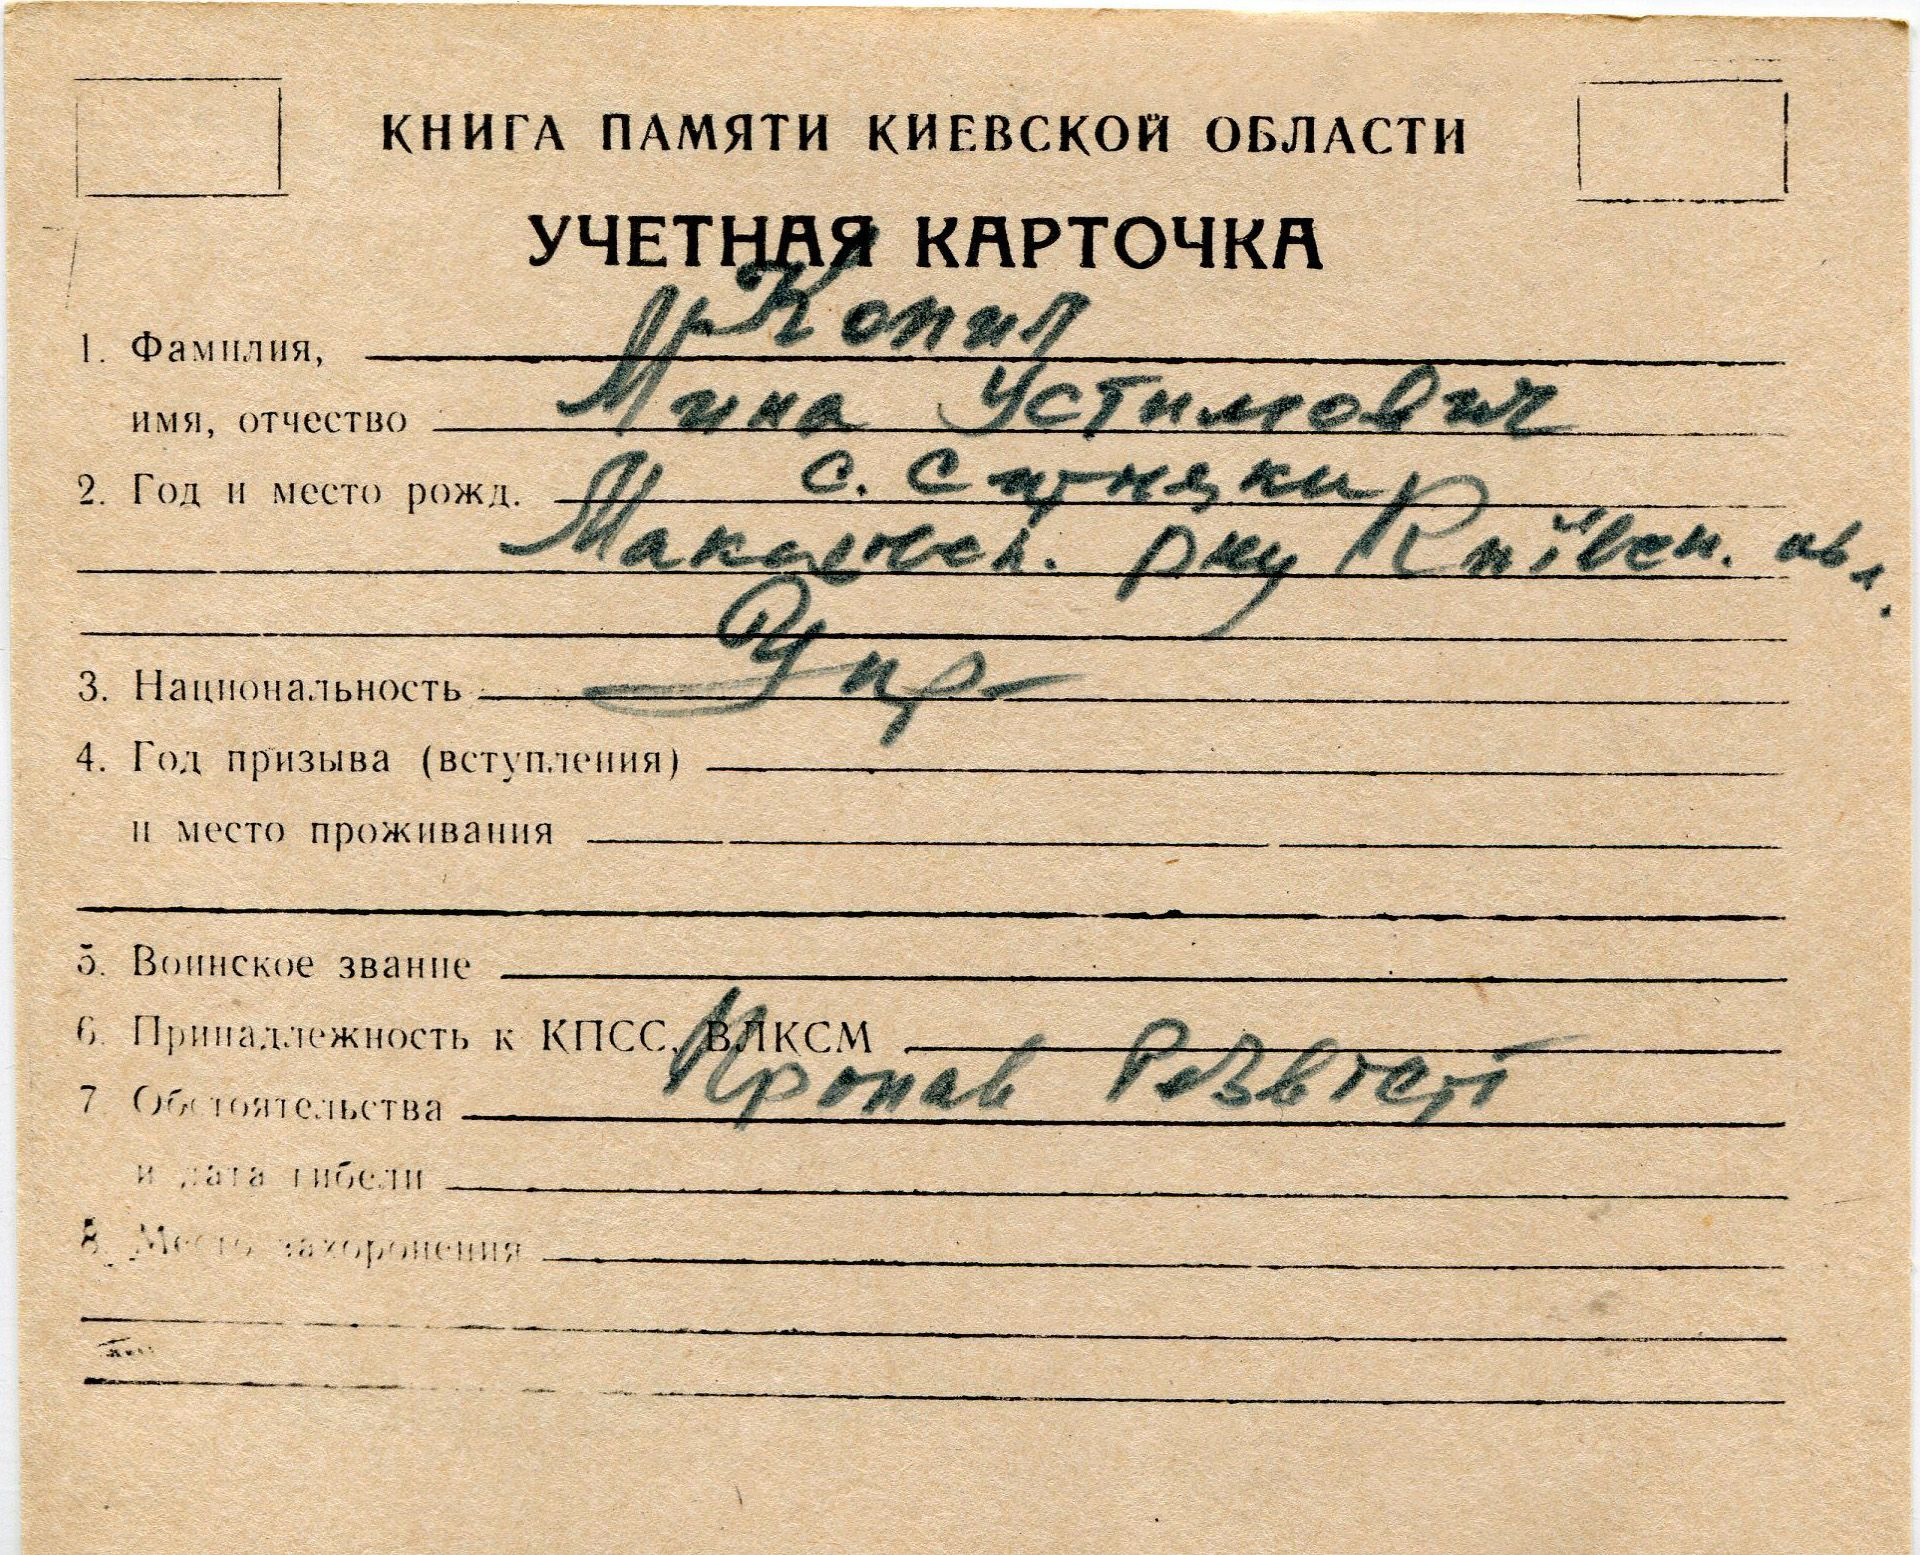 КНИГА ПАМЯТИ КИЕВСКОЙ ОБЛАСТИ
УЧЕТНАЯ КАРТОЧКА
1. Фамилия, Копил
имя, отчество Мина Устимович
2. Год и место рожд. с. Ситняки
Макаровск. рну Київск. обл.
3. Национальность Укр
4. Год призыва (вступления)
и место проживания
5. Воинское звание
6. Принадлежность к КПСС, ВЛКСМ
7 Обстоятельства Пропав безвісті
и дата гибели
8. Место захоронения